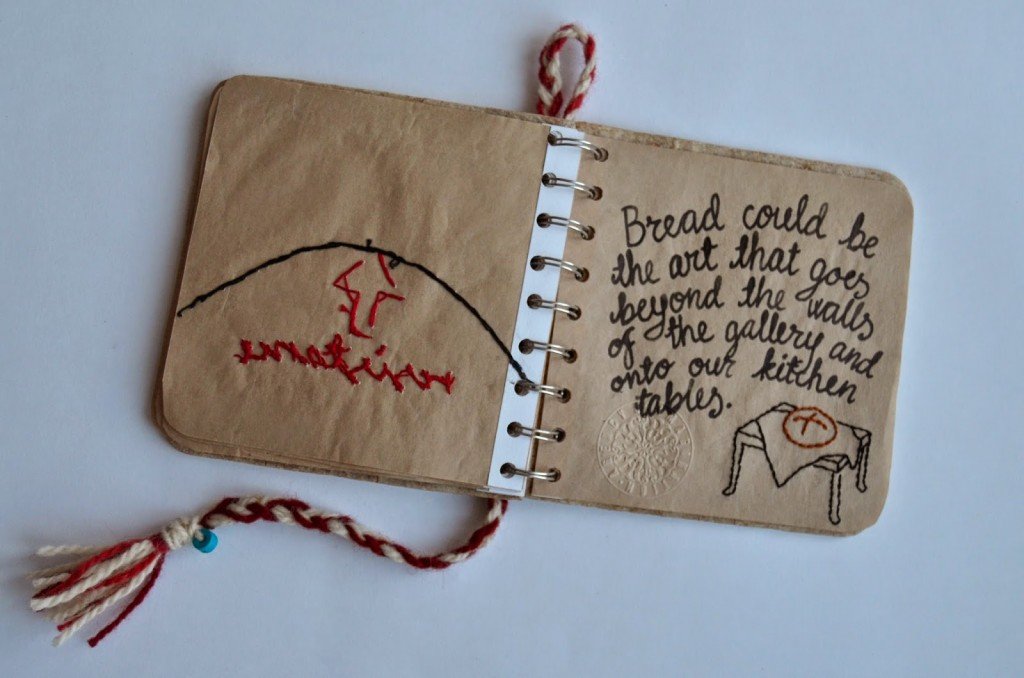 resistance
Bread could be
the art that goes
beyond the walls
of the gallery and
onto our kitchen
tables.